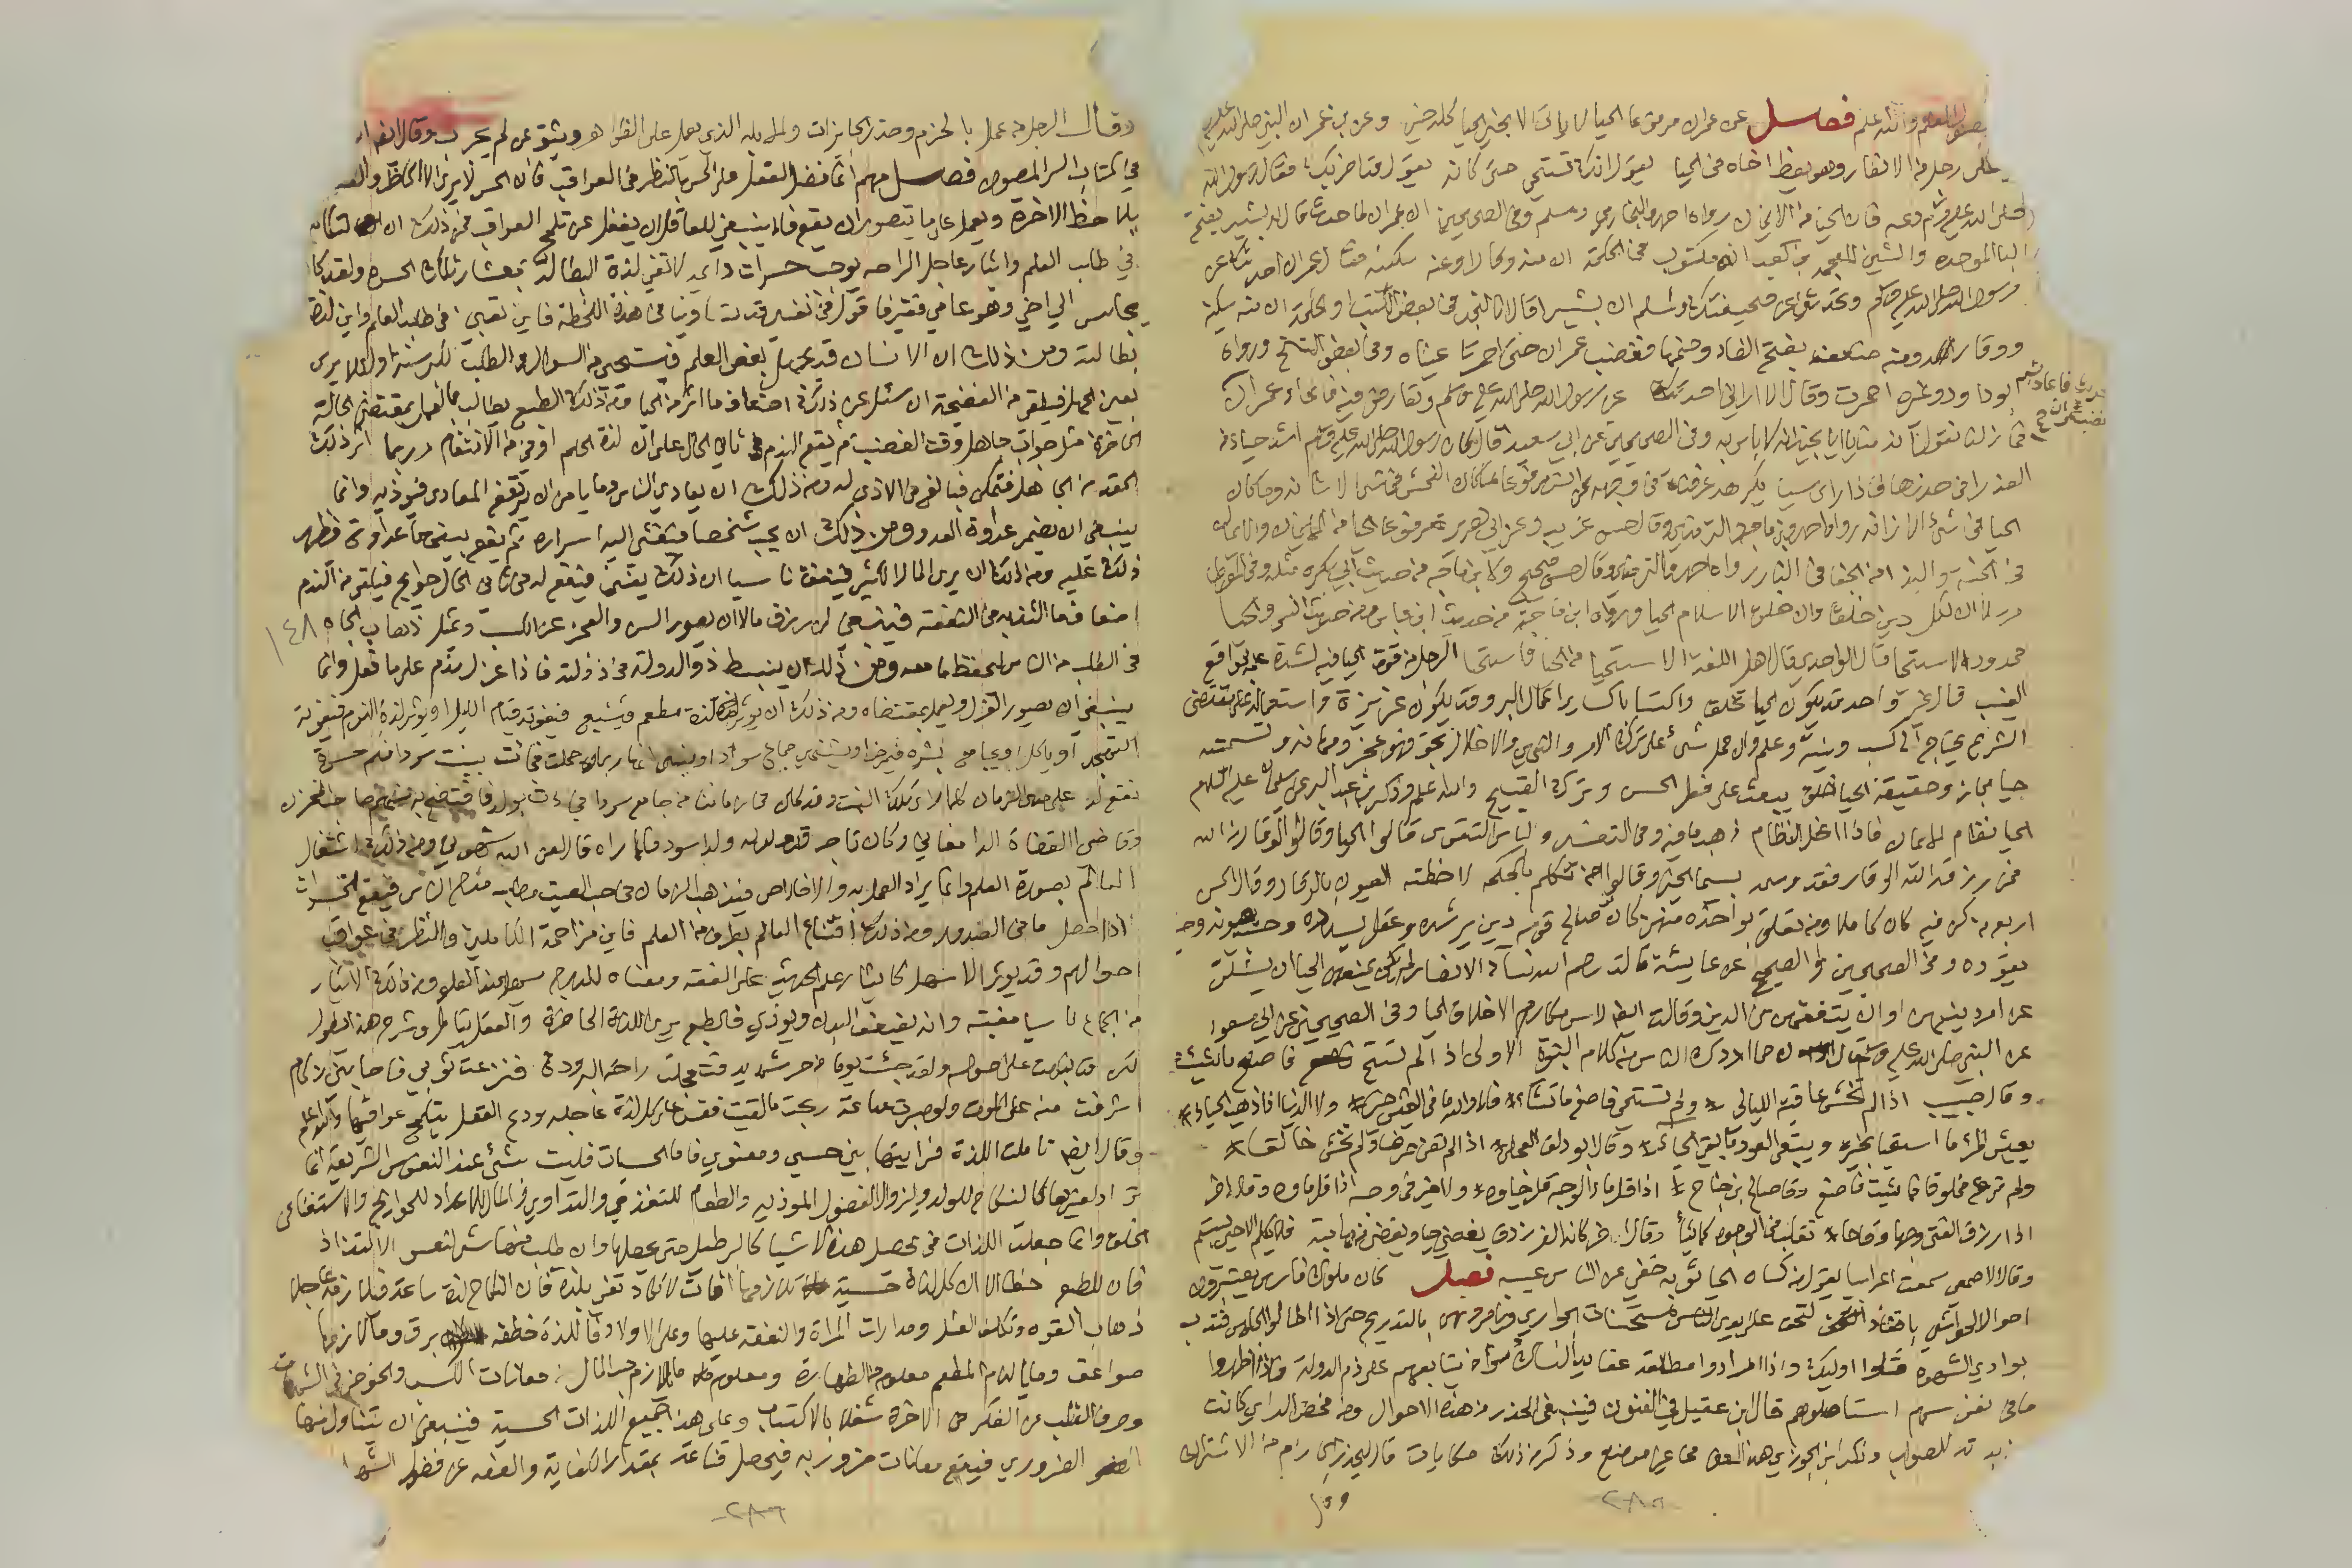 والله اعلم فصل عن عمران مرفوعا الحياء لا ياتي الا بخير الحيا كله خير وعن بن عمر ان النبي صلى الله عليه
على رجل من الانصار وهو يعظ اخاه في الحيا يقول انك تستحي حتى كانه يقول قد اضر بك فقال رسول الله
صلى الله عليه وسلم دعه فان الحيا من الايمان رواه احمد والبخاري ومسلم وفي الصحيحين ان عمران لما حدث قال له بشير بفتح
البا الموحده والشين المعجمه بن كعب انه مكتوب في الحكمة ان منه وقارا ومنه سكينه فقال عمران احدثك عن
رسول الله صلى الله عليه وسلم وتحدثني عن صحيفتك ولمسلم ان بشيرا قال انا لنجد في بعض الكتب او الحكمة ان منه سكينة
ووقارا ومنه ضعف بفتح الضاد وضمها فغضب عمران حتى احمرتا عيناه وفي بعض النسخ ورواه
ابو داود وغيره احمرت وقال الا اراني احدثك عن رسول الله صلى الله عليه وسلم وتعارض فيه فاعاد عمران
الحديث فاعاد بشير
فغضب عمران
فما زلنا نقول انه منا يا ابا نجيد انه لا باس به وفي الصحيحين عن ابي سعيد قال كان رسول الله صلى الله عليه وسلم اشد حياء من
العذرا في خدرها فاذا راى شيئا يكرهه عرفناه في وجهه وعن انس مرفوعا ما كان الفحش في شئ الا شانه وما كان
الحيا في شئ الا زانه رواه احمد وبن ماجه والترمذي وقال حسن غريب وعن ابي هريره مرفوعا الحيا من الايمان والايمان
في الجنه والبذا من الجفا والجفا في النار رواه احمد والترمذي وقال حسن صحيح ولابن ماجه من حديث ابي بكره مثله وفي الموطا
مرسلا ان لكل دين خلقا وان خلق الاسلام الحيا ورواه ابن ماجه من حديث ابن عباس ومن حديث انس والحيا
ممدود الاستحيا قال الواحدي قال اهل اللغة الاستحيا من الحيا فاستحيا الرجل من قوة الحيا فيه لشدة علمه بمواقع
العيب قال غير واحد قد يكون الحيا تخلقا واكتسابا كسائر اعمال البر وقد يكون غريزة واستعماله على مقتضى
الشرع يحتاج الى كسب ونية وعلم وان حمل شئ على ترك الامر والنهي والاخلال بحق فهو عجز ومهانه وتسميته
حيا مجاز وحقيقة الحيا خلق يبعث على فعل الحسن وترك القبيح والله اعلم وذكر بن عبد البر عن سليمان عليه السلام
الحيا نظام الايمان فاذا انحل النظام ذهب ما فيه وفي التفسير ولباس التقوى قالوا الحيا وقالوا الوقار من الله
فمن رزقه الله الوقار فقد وسمه بسيما الخير وقالوا من تكلم بالحكمة لاحظته العيون بالوقار وقال الحسن
اربع من كن فيه كان كاملا ومن تعلق بواحدة منهن كان من صالحي قومه دين يرشده وعقل يسدده وحسب يصونه وحيا
يقوده وفي الصحيحين او الصحيح عن عايشة قالت رحم الله نسا الانصار لم يكن يمنعهن الحيا ان يسئلن
عن امر دينهن او ان يتفقهن في الدين وقالت ايضا راس مكارم الاخلاق الحيا وفي الصحيحين عن ابي مسعود
عن النبي صلى الله عليه وسلم قال ان مما ادرك الناس من كلام النبوة الاولى اذا لم تستح فاصنع ما شئت
وقال حبيب اذا لم تخش عاقبة الليالي * ولم تستحي فاصنع ما تشاء * فلا والله ما في العيش خير * ولا الدنيا اذا ذهب الحياء *
يعيش المرء ما استحيا بخير * ويبقى العود ما بقي اللحاء * وقال ابو دلف العجلي * اذا لم تصن عرضا ولم تخش خالقا *
ولم ترع مخلوقا فما شئت فاصنع وقال صالح بن جناح * اذا قل ماء الوجه قل حياوه * ولا خير في وجه اذا قل ماوه وقال اخر
اذا رزق الفتى وجها وقاحا * تقلب في الوجوه كما يشأ وقال اخر كانه الفرزدق يغضي حيا ويغضى من مهابته فلا يكلم الا حين يبتسم
وقال الاصمعي سمعت اعرابيا يقول من كساه الحيا ثوبه خفي عن الناس عيبه فصل كان ملوك فارس يعتبرون
احوال الحواشي
بوادي الشهوة قتلوا اوليك واذا ارادوا مطالعة عقايد النساك دسوا من يتابعهم على ذم الدولة فاذا اظهروا
ما في نفوسهم استاصلوهم قال ابن عقيل في الفنون فينبغي الحذر من هذه الاحوال
وذكر ابن الجوزي هذا المعنى في غير موضع وذكر من ذلك حكايات
٢٨٩
وقال الرجل من عمل بالحزم وحذر الجايزات والابله الذي يعمل على الظواهر ويثق بمن لم يجرب وقال ايضا
في كتاب السر المصون فصل مهم انما فضل العقل على الحس بالنظر في العواقب فان الحس لا يرى الا الحاضر والعقل
يلاحظ الاخرة ويعمل على ما يتصور ان يقع فلا ينبغي للعاقل ان يغفل عن تلمح العواقب فمن ذلك ان التكاسل
في طلب العلم وايثار عاجل الراحه يوجب حسرات دايمه لا تفي لذة البطالة بمعشار تلك الحسرة ولقد كان
يجلس الي اخي وهو عامي فقير فاقول في نفسي قد تساوينا في هذه اللحظة فاين تعبي في طلب العلم واين لذة
بطالته ومن ذلك ان الانسان قد يجهل بعض العلم فيستحي من السوال والطلب لكبر سنه ولئلا يرى
بعين الجهل فيلقى من الفضيحة ان سئل عن ذلك اضعاف ما اثر من الحيا ومن ذلك ان الطبع يطالب بالعمل بمقتضى الحالة
الحاضرة مثل جواب جاهل وقت الغضب ثم يقع الندم في ثاني الحال على ان لذة الحلم اوفى من الانتقام وربما اثر ذلك
الحقد من الجاهل فتمكن فبالغ في الاذى له ومن ذلك ان يعادي الناس وما يامن ان يرتفع المعادى فيوذيه وانما
ينبغي ان يضمر عداوة العدو ومن ذلك ان يحب شخصا فيفشي اليه اسراره ثم يقع بينهما عداوة فيظهر
ذلك عليه ومن ذلك ان يرى المال الكثير فينفق ناسيا ان ذلك يفنى فيقع له في ثاني الحال حوايج فيلقى من الندم
اضعاف ما التذ به في النفقة فينبغي لمن رزق مالا ان يصور السن والعجز عن الكسب ويمثل ذهاب الجاه ١٤٨
في الطلب من الناس ليحفظ ما معه ومن ذلك ان ينبسط ذو الدولة في ذ ولته فاذا عزل ندم على ما فعل وانما
ينبغي ان يصور العزل ويعمل بمقتضاه ومن ذلك ان يوثر لذة مطعم فيشبع فيفوته قيام الليل او يوثر لذة النوم فيفوته
التهجد او ياكل او يجامع بشره فيمرض او يشتهي جماع سوداء وينسى انها ربما حملت فجائت ببنت سوداء فكم حسرة
تقع له على مدى الزمان كلما راى تلك البنت
وقاضي القضاة الدامغاني وكان تاجر قد ولد له ولد اسود فلما راه قال لعن الله شهوتي ومن ذلك اشتغال
العالم بصورة العلم وانما يراد العمل به والاخلاص فيذهب الزمان في حب الصيت وطلب مدح الناس فيقع الخسران
اذا حصل ما في الصدور ومن ذلك اقتناع العالم بطرف من العلم فاين مزاحمة الكاملين والنظر في عواقب
احوالهم وقد يوثر الاسهل كايثار علم الحديث على الفقه ومعناه
من الجماع ناسيا مغبته وانه يضعف البدن ويوذي فالطبع يرى اللذة الحاضرة والعقل يتامل وشرح هذا يطول
ولقد جئت يوما من حر شديد فتعجلت راحة البرودة فنزعت ثوبي فاصابني زكام
اشرفت منه على الموت ولو صبرت ساعة ربحت ما لقيت فقس على هذا كل لذة عاجله ودع العقل يتلمح عواقبها والله اعلم
وقال ايضا تاملت اللذة فرايتها بين حسي ومعنوي فاما الحسيات فليست بشئ عند النفوس الشريفة انما
تراد لغيرها كالنكاح للولد وليزول الفضول الموذيه والطعام للتغذي والتداوي والمال للاعداد للحوايج والاستغنا عن
الخلق وانما جعلت اللذات في تحصيل هذه الاشيا كالبرطيل حتى يحصلها وان طلب منها شئ لنفس الالتذاذ
فان للطبع حظا الا ان كل لذة حسية تلازمها افات لا تكاد تفي بلذة فان النكاح لذة ساعة فيلازمه عاجلا
ذهاب القوه وتكلف الغسل ومدارات المراة والنفقه عليها وعلى الاولاد فاللذة خطفه برق وما لازمها
صواعق وما يلازم المطعم معلوم من الطهارة ومعلوم ما يلازم حب المال من معانات الكسب والخوض في الشبهات
وصرف القلب عن الفكر في الاخرة شغلا بالاكتساب وعلى هذا جميع اللذات الحسية فينبغي ان يتناول منها
الضروري فيقع معانات ضروريه فيحصل قناعة بمقدار الكفاية والعفه عن فضول الشهوات
٢٨٦